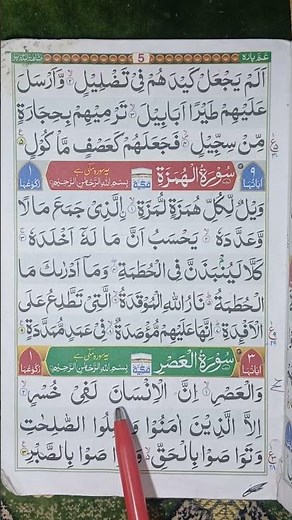 عمّ پارہ ۳۰ 5
اَلَمْ يَجْعَلْ كَيْدَهُمْ فِىْ تَضْلِيْلٍ ۙ وَّاَرْسَلَ
عَلَيْهِمْ طَيْرًا اَبَابِيْلَ ۙ تَرْمِيْهِمْ بِحِجَارَةٍ
مِّنْ سِجِّيْلٍ ۙ فَجَعَلَهُمْ كَعَصْفٍ مَّاْكُوْلٍ
اٰيَاتُهَا ۹ سُوْرَةُ الْهُمَزَةِ مكية یہ سورۃ مکی ہے بِسْمِ اللّٰهِ الرَّحْمٰنِ الرَّحِيْمِ رُكُوْعُهَا ۱
وَيْلٌ لِّكُلِّ هُمَزَةٍ لُّمَزَةٍ ۙ اۨلَّذِىْ جَمَعَ مَالًا
وَّعَدَّدَهٗ ۙ يَحْسَبُ اَنَّ مَالَهٗٓ اَخْلَدَهٗ
كَلَّا لَيُنْۢبَذَنَّ فِى الْحُطَمَةِ ۖ وَمَآ اَدْرٰىكَ مَا
الْحُطَمَةُ ؕ نَارُ اللّٰهِ الْمُوْقَدَةُ ۙ الَّتِىْ تَطَّلِعُ عَلَى
الْاَفْـِٕدَةِ ؕ اِنَّهَا عَلَيْهِمْ مُّؤْصَدَةٌ ۙ فِىْ عَمَدٍ مُّمَدَّدَةٍ
اٰيَاتُهَا ۳ سُوْرَةُ الْعَصْرِ مكية یہ سورۃ مکی ہے بِسْمِ اللّٰهِ الرَّحْمٰنِ الرَّحِيْمِ رُكُوْعُهَا ۱
وَالْعَصْرِ ۙ اِنَّ الْاِنْسَانَ لَفِىْ خُسْرٍ ۙ
اِلَّا الَّذِيْنَ اٰمَنُوْا وَعَمِلُوا الصّٰلِحٰتِ
وَتَوَاصَوْا بِالْحَقِّ ۙ وَتَوَاصَوْا بِالصَّبْرِ